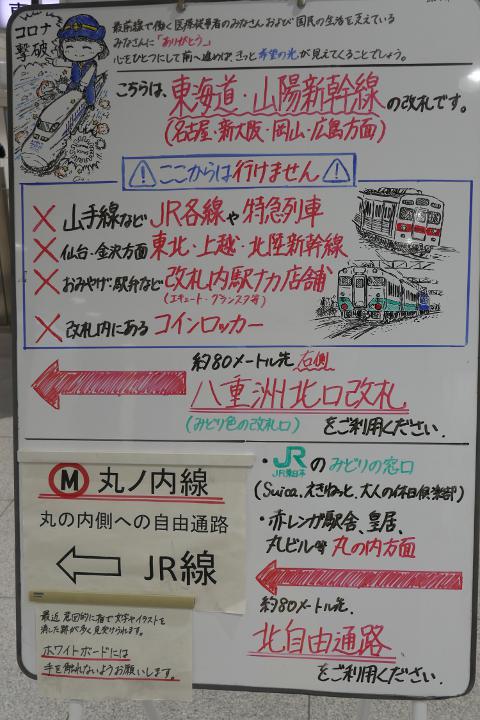 コロナ
撃破
最前線で働く医療従事者のみなさんおよび国民の生活を支えている
みなさんに「ありがとう」
心をひとつにして前へ進めば、きっと希望の光が見えてくることでしょう。
こちらは、東海道・山陽新幹線の改札です。
(名古屋・新大阪・岡山・広島方面)
ここからは行けません
× 山手線など JR各線や特急列車
× 仙台・金沢方面 東北・上越・北陸新幹線
× おみやげ・駅弁など 改札内駅ナカ店舗
(エキュート・グランスタ等)
× 改札内にある コインロッカー
約80メートル先 右側
八重洲北口改札
(みどり色の改札口)
をご利用ください.
M 丸ノ内線
丸の内側への自由通路
JR線
最近 意図的に指で文字やイラストを
消した跡が多く見受けられます。
ホワイトボードには
手を触れないようお願いします。
・JRのみどりの窓口
JR東日本
(Suica、えきねっと、大人の休日倶楽部)
・赤レンガ駅舎、皇居、
丸ビル等 丸の内方面
約80メートル先.
北自由通路
をご利用ください.